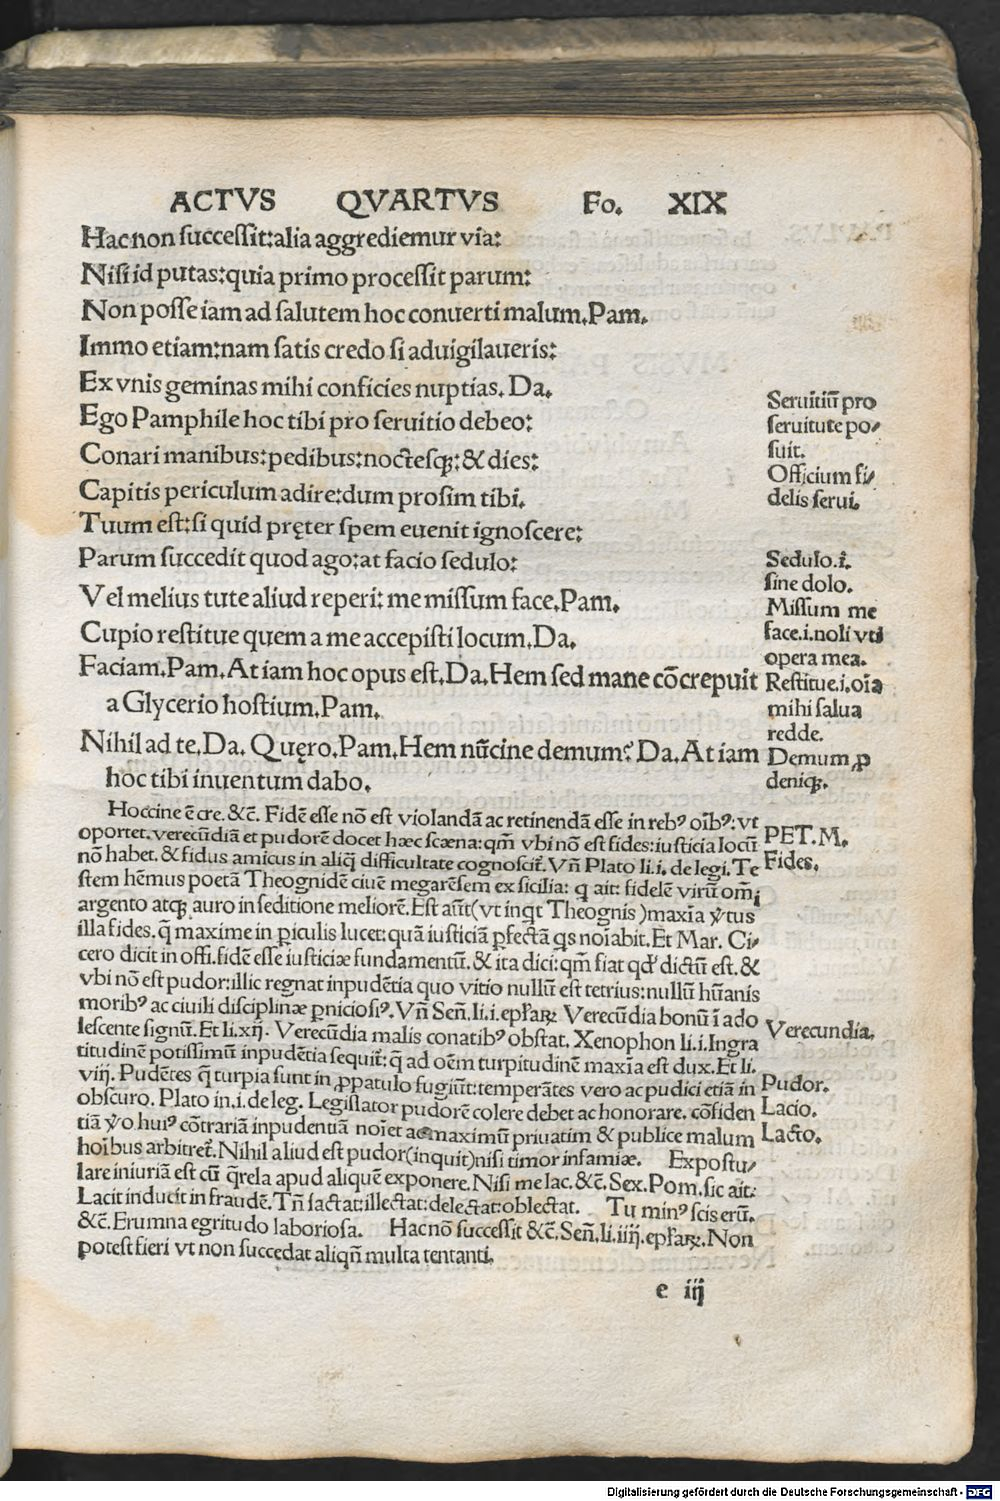 ACTVS QVARTVS Fo. XIX
Hac non succeſſit:alia aggrediemur via:
Niſi id putas:quia primo proceſſit parum:
Non poſſe iam ad ſalutem hoc conuerti malum.Pam.
Immo etiam:nam ſatis credo ſi aduigilaueris:
Ex vnis geminas mihi conficies nuptias.Da.
Ego Pamphile hoc tibi pro ſeruitio debeo:
Conari manibus:pedibus:nocteſqꝫ:& dies:
Capitis periculum adire:dum proſim tibi.
Tuum eſt:ſi quid pręter ſpem euenit ignoſcere:
Parum ſuccedit quod ago:at facio ſedulo:
Vel melius tute aliud reperi:me miſſum face.Pam.
Cupio reſtitue quem a me accepiſti locum.Da.
Faciam.Pam.At iam hoc opus eſt.Da.Hem ſed mane cōcrepuit
a Glycerio hoſtium.Pam.
Nihil ad te.Da. Quęro.Pam.Hem nūccine demum? Da.At iam
hoc tibi inuentum dabo.
Seruitiū pro
ſeruitute po-
ſuit.
Officium fi-
delis ſerui.
Sedulo.i.
ſine dolo.
Miſſum me
face.i.noli vti
opera mea.
Reſtitue.i.oīa
mihi ſalua
redde.
Demum ꝓ
deniqꝫ.
Hoccine ē cre. &c̄. Fidē eſſe nō eſt violandā ac retinendā eſſe in rebꝰ oībꝰ:vt
oportet.verecūdiā et pudorē docet hæc ſcæna:qm̄ vbi nō eſt fides:iuſticia locū
nō habet.& fidus amicus in aliq̄ difficultate cognoſcit̄. Vn̄ Plato li.i.de legi. Te
ſtem hēmus poetā Theognidē ciuē megarēſem ex ſicilia: q̄ ait: fidelē virū om̄i
argento atqꝫ auro in ſeditione meliorē.Eſt aūt(vt inqt Theognis)maxīa v̓tus
illa fides.q̄ maxime in ꝑiculis lucet:quā iuſticiā ꝑfectā qs noīabit.Et Mar. Ci-
cero dicit in offi.fidē eſſe iuſticiæ fundamentū.& ita dici:qm̄ fiat qd̓ dictū eſt.&
vbi nō eſt pudor:illic regnat inpudētia quo vitio nullū eſt tetrius:nullū hūanis
moribꝰ ac ciuili diſciplinæ ꝑnicioſiꝰ.Vn̄ Sen̄.li.i.epl̓aꝝ. Verecūdia bonū ī ado
leſcente ſignū.Et li.xij. Verecūdia malis conatibꝰ obſtat. Xenophon li.i.Ingra
titudinē potiſſimū inpudētia ſequit̄:q̄ ad oēm turpitudinē maxīa eſt dux.Et li.
viij. Pudētes q̄ turpia ſunt in ꝓpatulo fugiūt:temperātes vero ac pudici etiā in
obſcuro.Plato in.i.de leg. Legiſlator pudorē colere debet ac honorare. cōfiden
tiā v̓o huiꝰ cōtrariā inpudentiā noīet ac maximū priuatim & publice malum
hoībus arbitret̄.Nihil aliud eſt pudor(inquit)niſi timor infamiæ. Expoſtu-
lare iniuriā eſt cū q̄rela apud aliquē exponere.Niſi me lac.&c̄.Sex.Pom.ſic ait:
Lacit inducit in fraudē.Tn̄ ſactat:illectat:delectat:oblectat. Tu minꝰ ſcis erū.
&c̄.Erumna egritudo laborioſa. Hac nō ſucceſſit &c̄.Sen̄.li.iiij.epl̓aꝝ.Non
poteſt fieri vt non ſuccedat aliqn̄ multa tentanti.
PET.M.
Fides.
Verecundia.
Pudor.
Lacio.
Lacto.
e iij
Digitalisierung gefördert durch die Deutsche Forschungsgemeinschaft - DFG